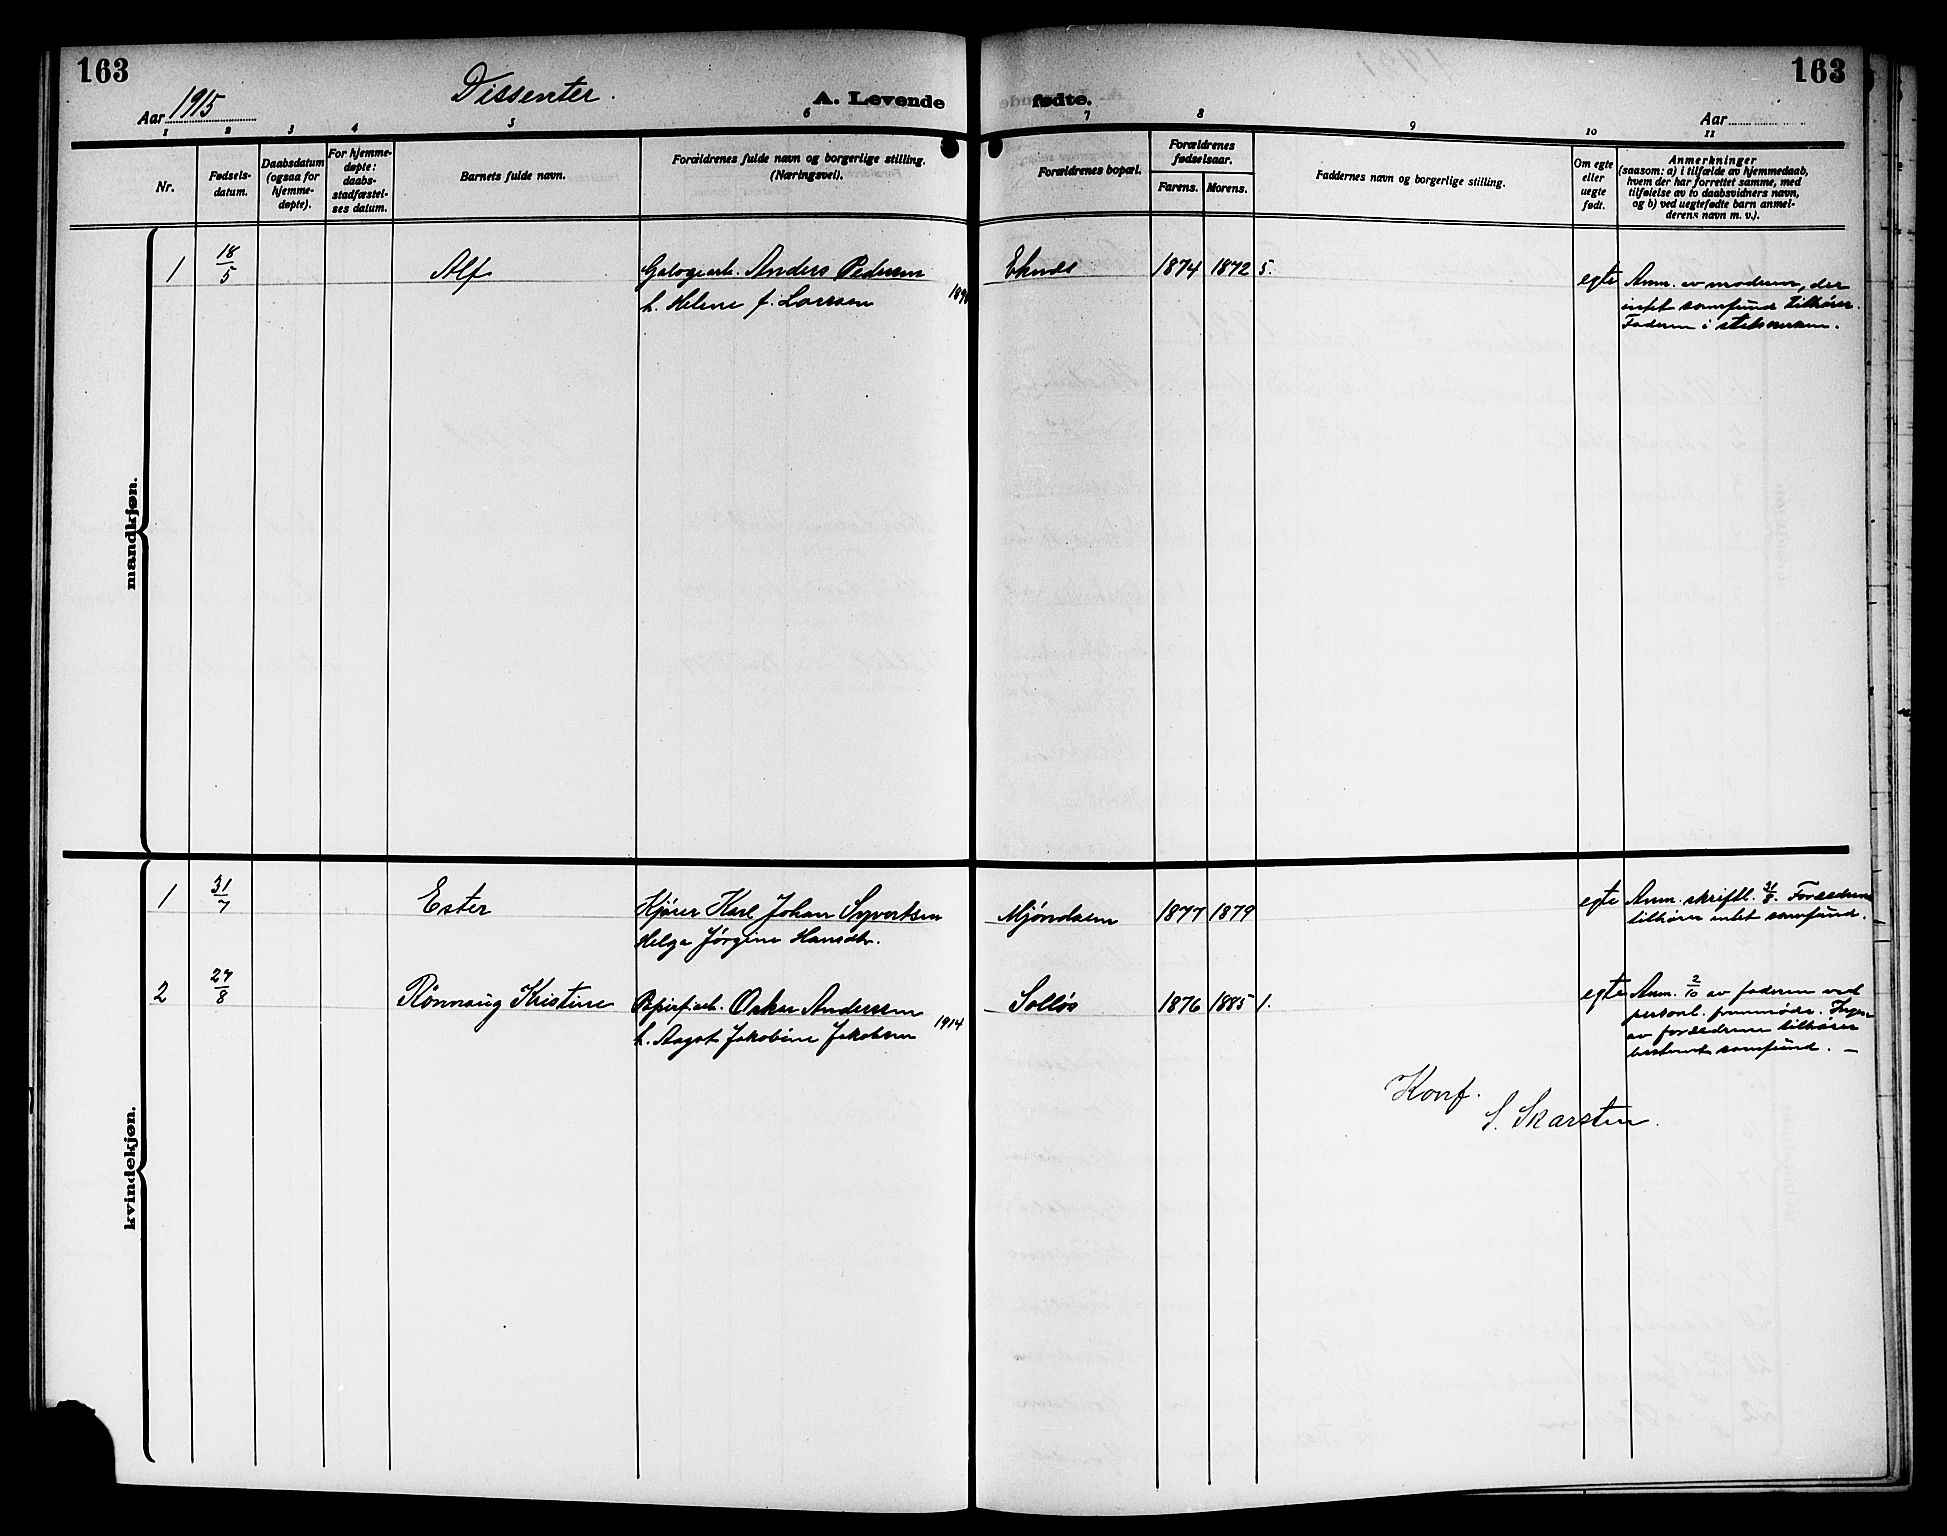 163
163
Aar 1915
Dissenter.
A. Levende fødte.
Aar
1 2 3 4 5 6 7 8 9 10 11
Nr.
Fødsels-
datum.
Daabsdatum
(ogsaa for
hjemme-
døpte).
For hjemme-
døpte:
daabs-
stadfæstel-
ses datum.
Barnets fulde navn.
Forældrenes fulde navn og borgerlige stilling.
(Næringsvei).
Forældrenes bopæl.
Forældrenes
fødselsaar.
Farens. Morens.
Faddernes navn og borgerlige stilling.
Om egte
eller
uegte
født.
Anmerkninger
(saasom: a) i tilfælde av hjemmedaab,
hvem der har forrettet samme, med
tilføielse av to daabsvidners navn,
og b) ved uegtefødte barn anmel-
derens navn m. v.).
mandkjøn.
1 18/5 Alf Anders Pedersen 1874 1872 5. egte Anm. av moderen, der
h. Helene f. Larssen intet samfund tilhører.
Faderen i statskirken.
kvindekjøn.
1 31/7 Ester Kjører Karl Johan Syvertsen Mjøndalen 1877 1879 egte Anm. skriftl. Forældrene
Helga Jørgine Hansdtr. tilhører intet samfund.
2 27/8 Rønnaug Kristine Papirf.arb. Oskar Anderssen Solløs 1876 1885 1. egte Anm. 2/10 av faderen ved
h. Aagot Jakobine Jakobsen 1914 personl. fremmøde. Ingen
av forældrene tilhører
bestemt samfund. —
Konf.
S. Skarsten.